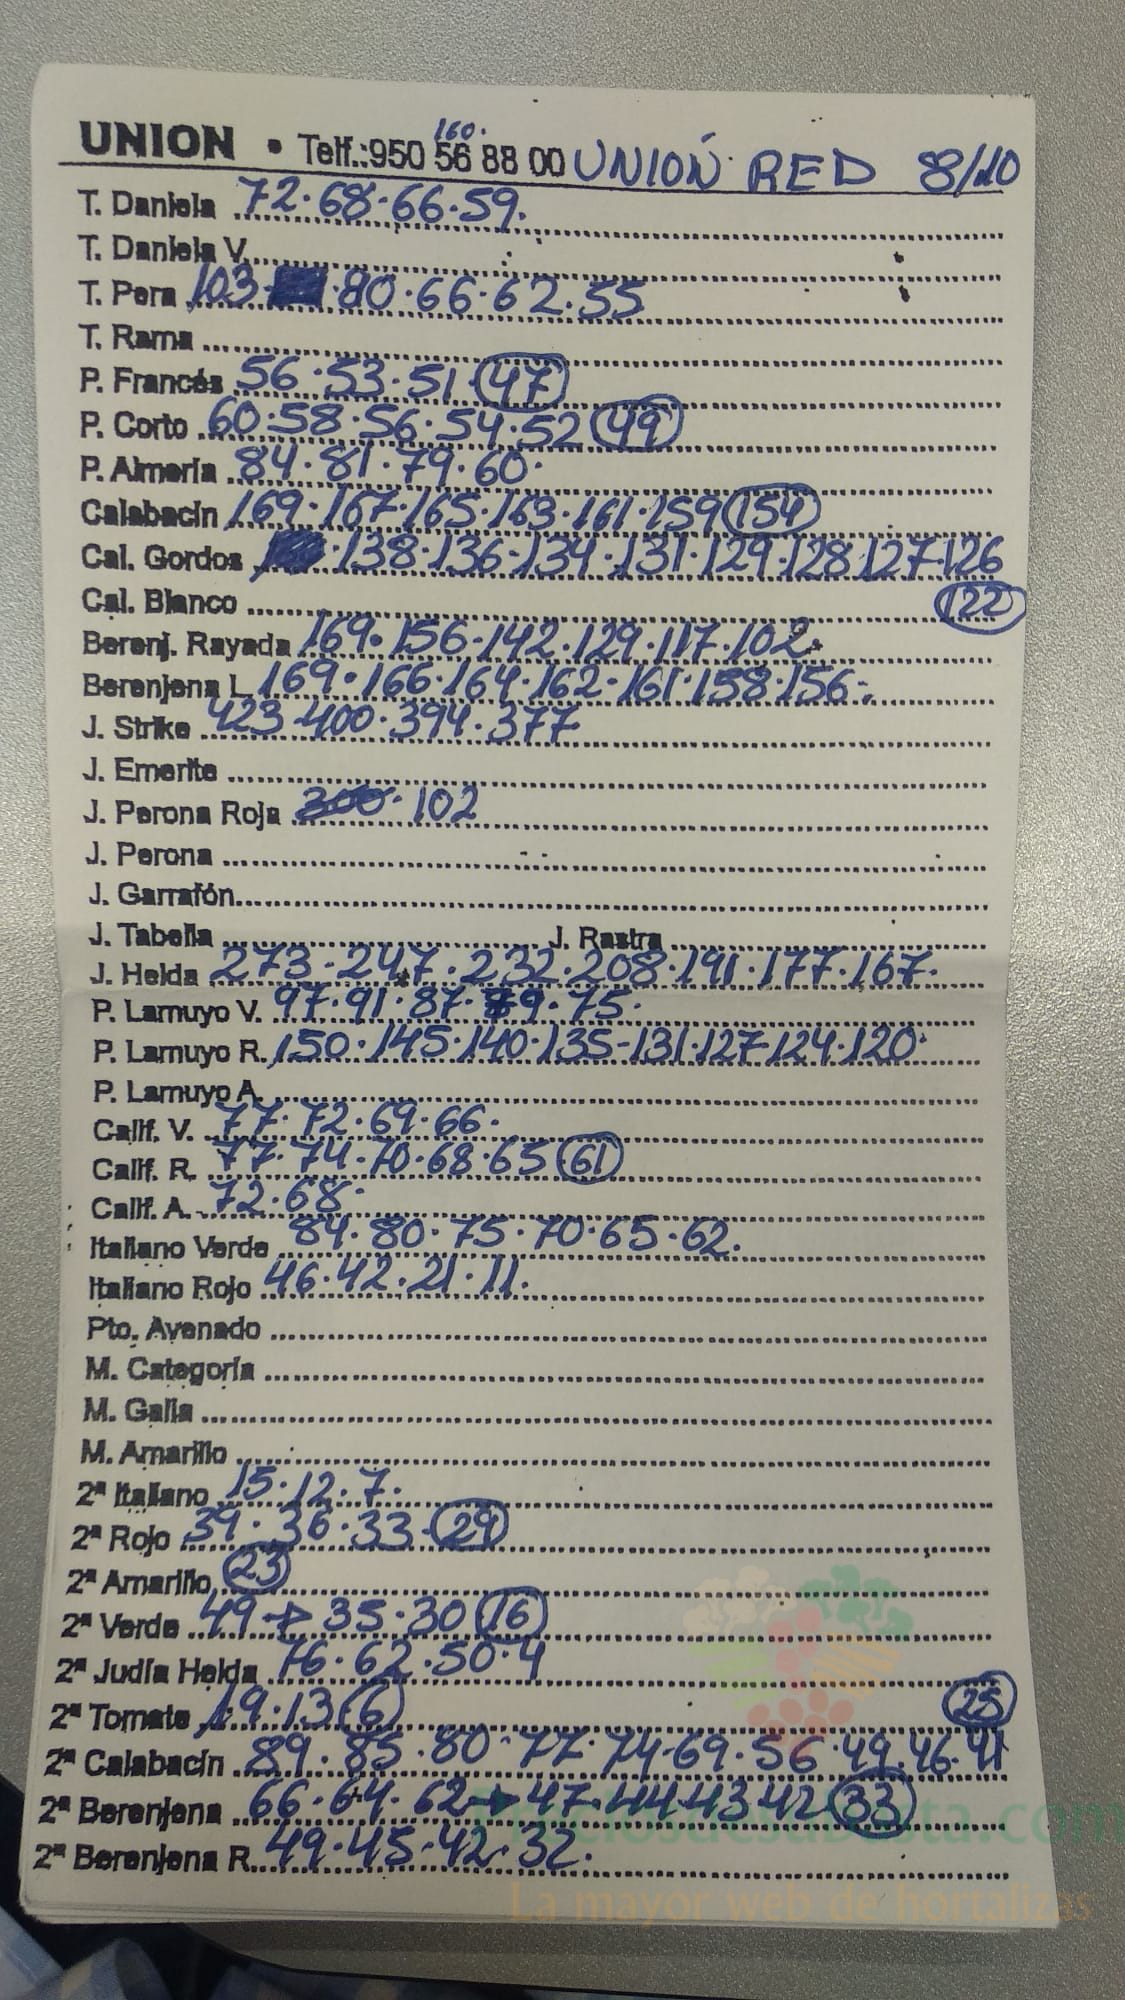 160.
UNION • Telf.:950 56 88 00 UNIÓN RED 8/10
T. Daniela 72·68·66·59.
T. Daniela V.
T. Pera 103· ·80·66·62·55
T. Rama
P. Francés 56·53·51·47
P. Corto 60·58·56·54·52 49
P. Almería 84·81·79·60·
Calabacín 169·167·165·163·161·159 154
Cal. Gordos ·138·136·134·131·129·128·127·126
Cal. Blanco 122
Berenj. Rayada 169·156·142·129·117·102·
Berenjena L 169·166·164·162·161·158·156·
J. Strike 423·400·394·377
J. Emerite
J. Perona Roja 300· 102
J. Perona
J. Garrafón
J. Tabella J. Rastra
J. Helda 273·247·232·208·191·177·167·
P. Lamuyo V. 97·91·87·79·75·
P. Lamuyo R. 150·145·140·135·131·127·124·120·
P. Lamuyo A.
Calif. V. 77·72·69·66·
Calif. R. 77·74·70·68·65 61
Calif. A. 72·68·
Italiano Verde 84·80·75·70·65·62.
Italiano Rojo 46·42·21·11.
Pto. Avenado
M. Categoría
M. Galia
M. Amarillo
2ª Italiano 15·12·7.
2ª Rojo 39·36·33·29
2ª Amarillo 23
2ª Verde 49→35·30 16
2ª Judía Helda 76·62·50·4
2ª Tomate 19·13 6 25
2ª Calabacín 89·85·80·77·74·69·56·49·46·41
2ª Berenjena 66·64·62→47·44·43·42·33
2ª Berenjena R. 49·45·42·32.
Preciosdesubasta.com
La mayor web de hortalizas